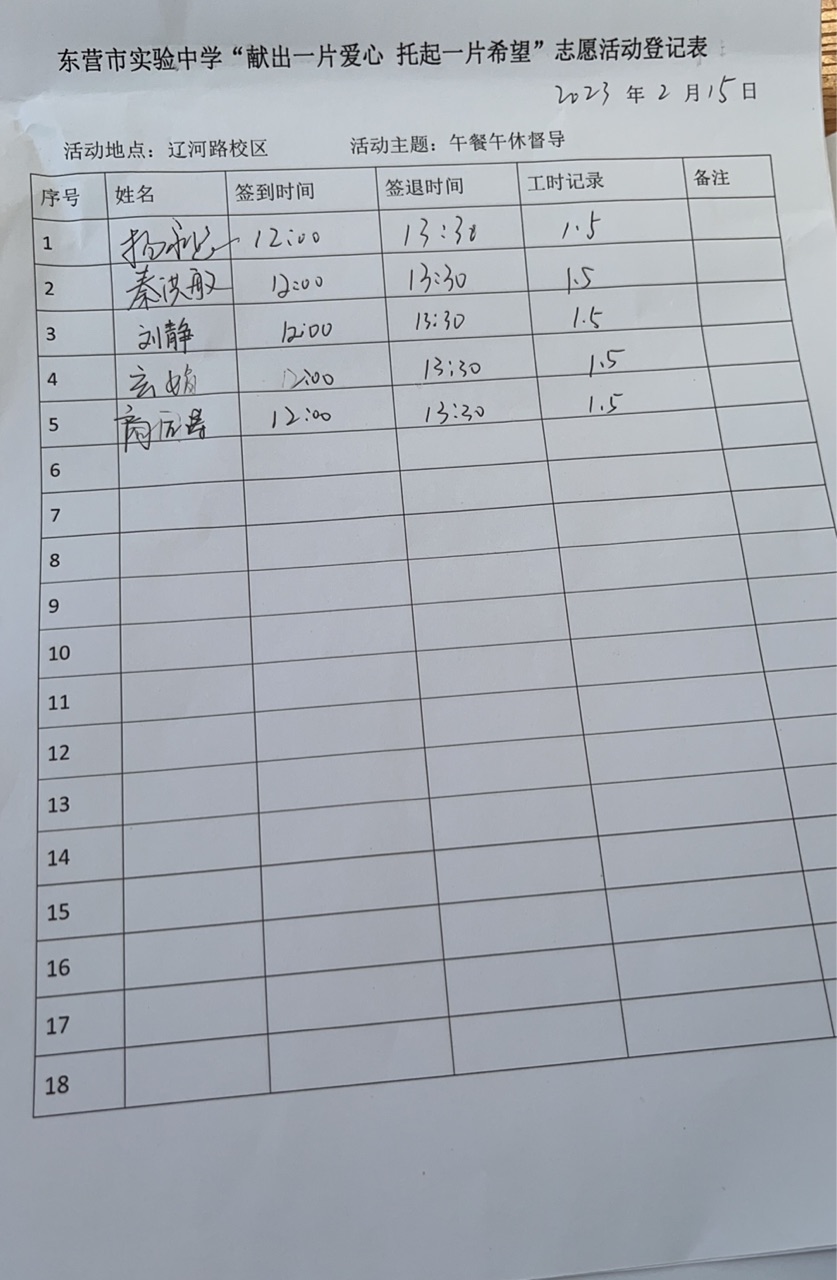 东营市实验中学“献出一片爱心 托起一片希望”志愿活动登记表
2023 年 2 月 15 日
活动地点：辽河路校区 活动主题：午餐午休督导
序号 姓名 签到时间 签退时间 工时记录 备注
1 12:00 13:30 1.5
2 秦洪敏 12:00 13:30 1.5
3 刘静 12:00 13:30 1.5
4 12:00 13:30 1.5
5 12:00 13:30 1.5
6
7
8
9
10
11
12
13
14
15
16
17
18